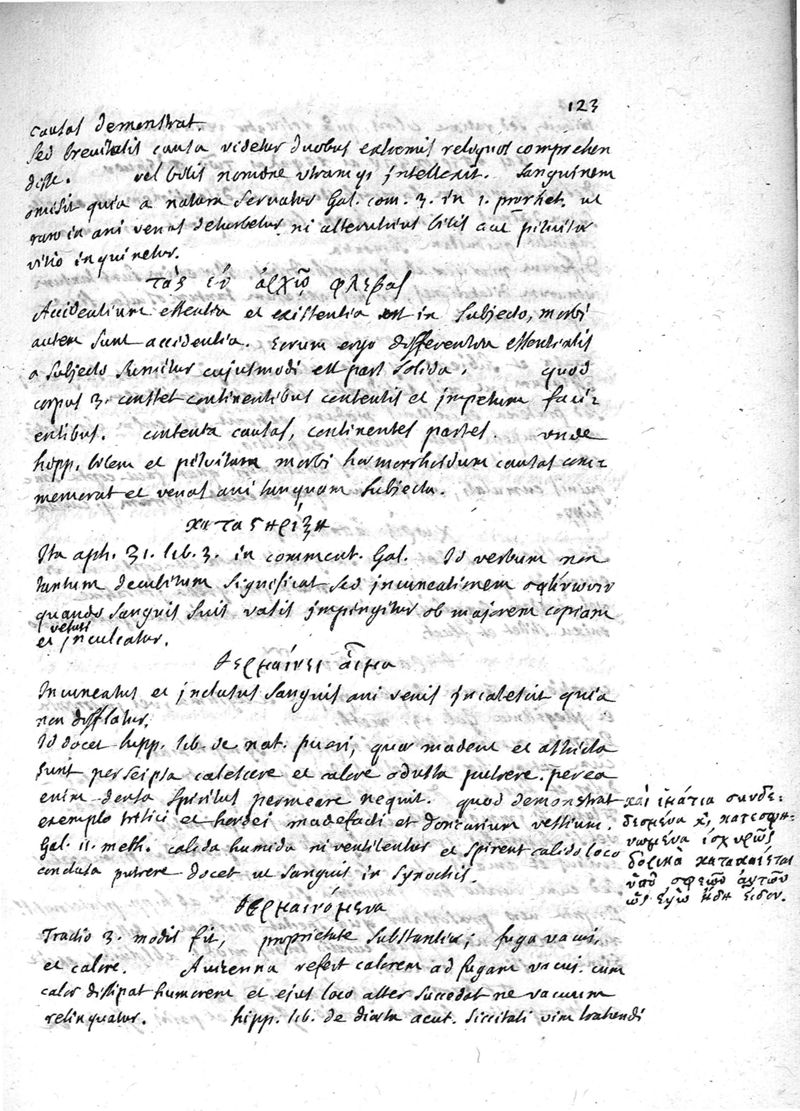 123
causas demonstrat.
sed brevitatis causa videtur duobus extremis reliquos comprehen
disse. vel bilis nomine utramq; intellexit. Sanguinem
omisit quia a natura servatur Gal. com. 3. in 1. prorhet. ut
raro in ani venas deturbetur ni alterutrius bilis aut pituitæ
vitio inquinetur.
τὰς ἐν ἀρχῷ φλέβας
Accidentium essentia et existentia est in subjecto, morbi
autem sunt accidentia. Eorum ergo differentia essentialis
a subjecto sumitur cujusmodi est pars solida. quod
corpus 3. constet continentibus contentis et impetum faci-
entibus. contenta causas, continentes partes. unde
hipp. bilem et pituitam morbi hæmorrhoidum causas com-
memorat et venas ani tanquam subjecta.
καταστηρίξῃ
Ita aph. 31. lib. 3. in comment. Gal. Id verbum non
tantum decubitum significat sed incuneationem σφήνωσιν
quando sanguis suis vasis impingitur ob majorem copiam
et veluti inculcatur.
θερμαίνει αἷμα
Incuneatus et inclusus sanguis ani venis incalescit quia
non difflatur.
Id docet hipp. lib. de nat. pueri, quæ madent et astricta
sunt per seipsa calescere et calore adusta putrere. per ea
enim densa spiritus permeare nequit. quod demonstrat
exemplo tritici et hordei madefacti et vestium.
Gal. 11. meth. calida humida ni ventilentur et spirent calido loco
conclusa putrere docet ut sanguis in synochis.
καὶ ἱμάτια συνδε-
δεσμένα κ κατεσφη-
νωμένα ἰσχυρῶς
κατακαίεται
ὑπὸ σφεῶν αὐτῶν
ὡς ἐγὼ ἤδη εἶδον.
θερμαινόμενα
Tractio 3. modis fit, proprietate substantiæ; fuga vacui,
et calore. Avicenna refert calorem ad fugam vacui. cum
calor dissipat humorem et ejus loco alter succedat ne vacuum
relinquatur. hipp. lib. de diæta acut. siccitati vim trahendi